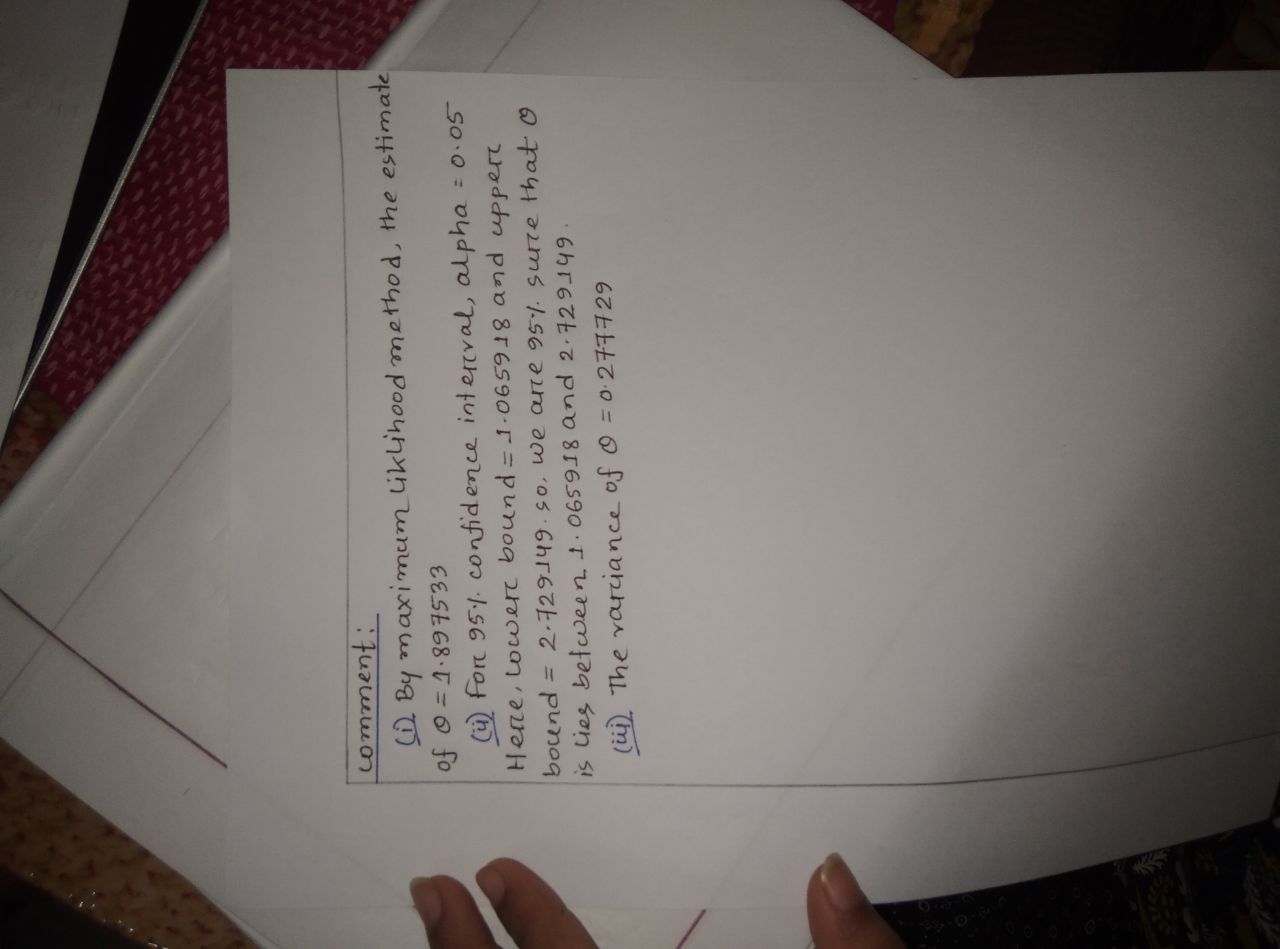 comment:
(i) By maximum liklihood method, the estimate
of θ = 1.897533
(ii) Forc 95% confidence intercval, alpha = 0.05
Herce, Lowerc bound = 1.065918 and upperc
bound = 2.729149. so, we arce 95% surce that θ
is lies between 1.065918 and 2.729149.
(iii) The varciance of θ = 0.277729